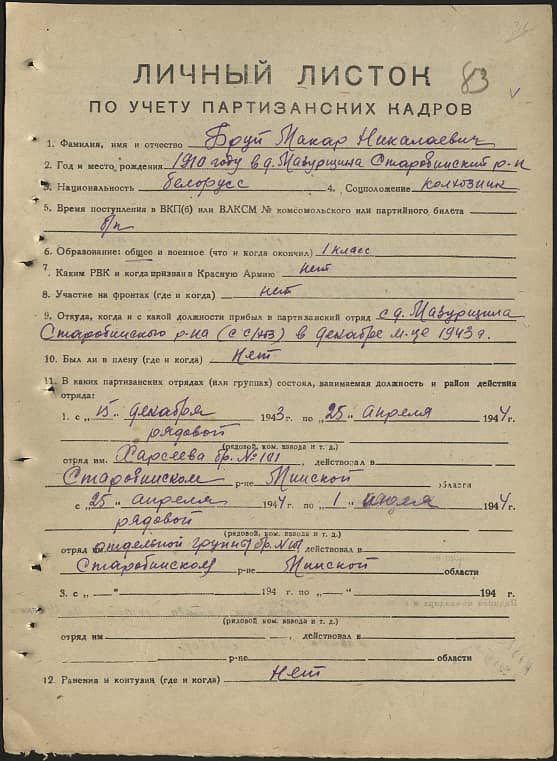 83
ЛИЧНЫЙ ЛИСТОК
ПО УЧЕТУ ПАРТИЗАНСКИХ КАДРОВ
1. Фамилия, имя и отчество Бруй Макар Николаевич
2. Год и место рождения 1910 году в д. Мазурщина Старобинский р-н
3. Национальность белорусс 4. Соцположение колхозник
5. Время поступления в ВКП(б) или ВЛКСМ № комсомольского или партийного билета
б/п
6. Образование: общее и военное (что и когда окончил) 1 класс
7. Каким РВК и когда призван в Красную Армию нет
8. Участие на фронтах (где и когда) нет
9. Откуда, когда и с какой должности прибыл в партизанский отряд с д. Мазурщина
Старобинского р-на в декабре м-це 1943 г.
10. Был ли в плену (где и когда) Нет
11. В каких партизанских отрядах (или группах) состоял, занимаемая должность и район действия
отряда:
1. с „15“ декабря 1943 г. по „25“ апреля 1944 г.
рядовой
(рядовой, ком. взвода и т. д.)
отряд им. бр. № 101, действовал в
Старобинском р-не Минской области
с „25“ апреля 1944 г. по „1“ 1944 г.
рядовой
(рядовой, ком. взвода и т. д.)
отряд им отдельной группы бр. № 101 действовал в
Старобинском р-не Минской области
3. с „—“ 194 г. по „—“ 194 г.
(рядовой, ком. взвода и т. д.)
отряд им , действовал в
р-не области
12. Ранения и контузии (где и когда) Нет